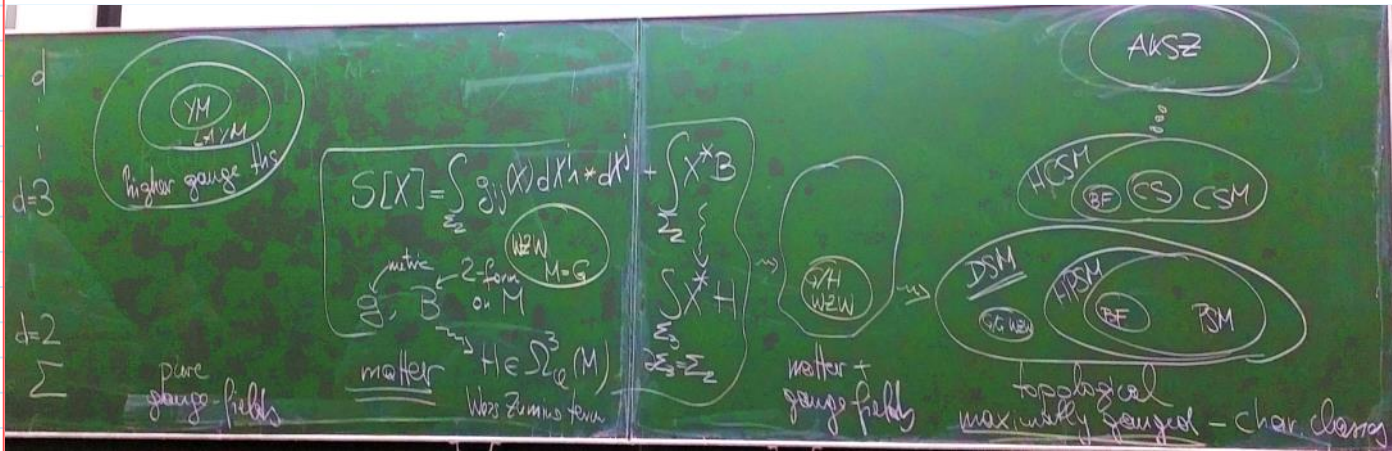 d
d=3
d=2
Σ
YM
higher gauge ths
pure
gauge fields
S[X] = ∫_{Σ₂} g_{ij}(X) dX^i ∧ * dX^j + ∫_{Σ₂} X*B
WZW
M=G
metric
2-form
on M
g, B
H ∈ Ω³_{cl}(M)
matter
Wess Zumino term
∫_{Σ₃} X*H
∂Σ₃=Σ₂
G/H
WZW
matter +
gauge fields
AKSZ
HCSM
BF
CS
CSM
DSM
HPSM
G/G WZW
BF
PSM
topological
maximally gauged – char. classes